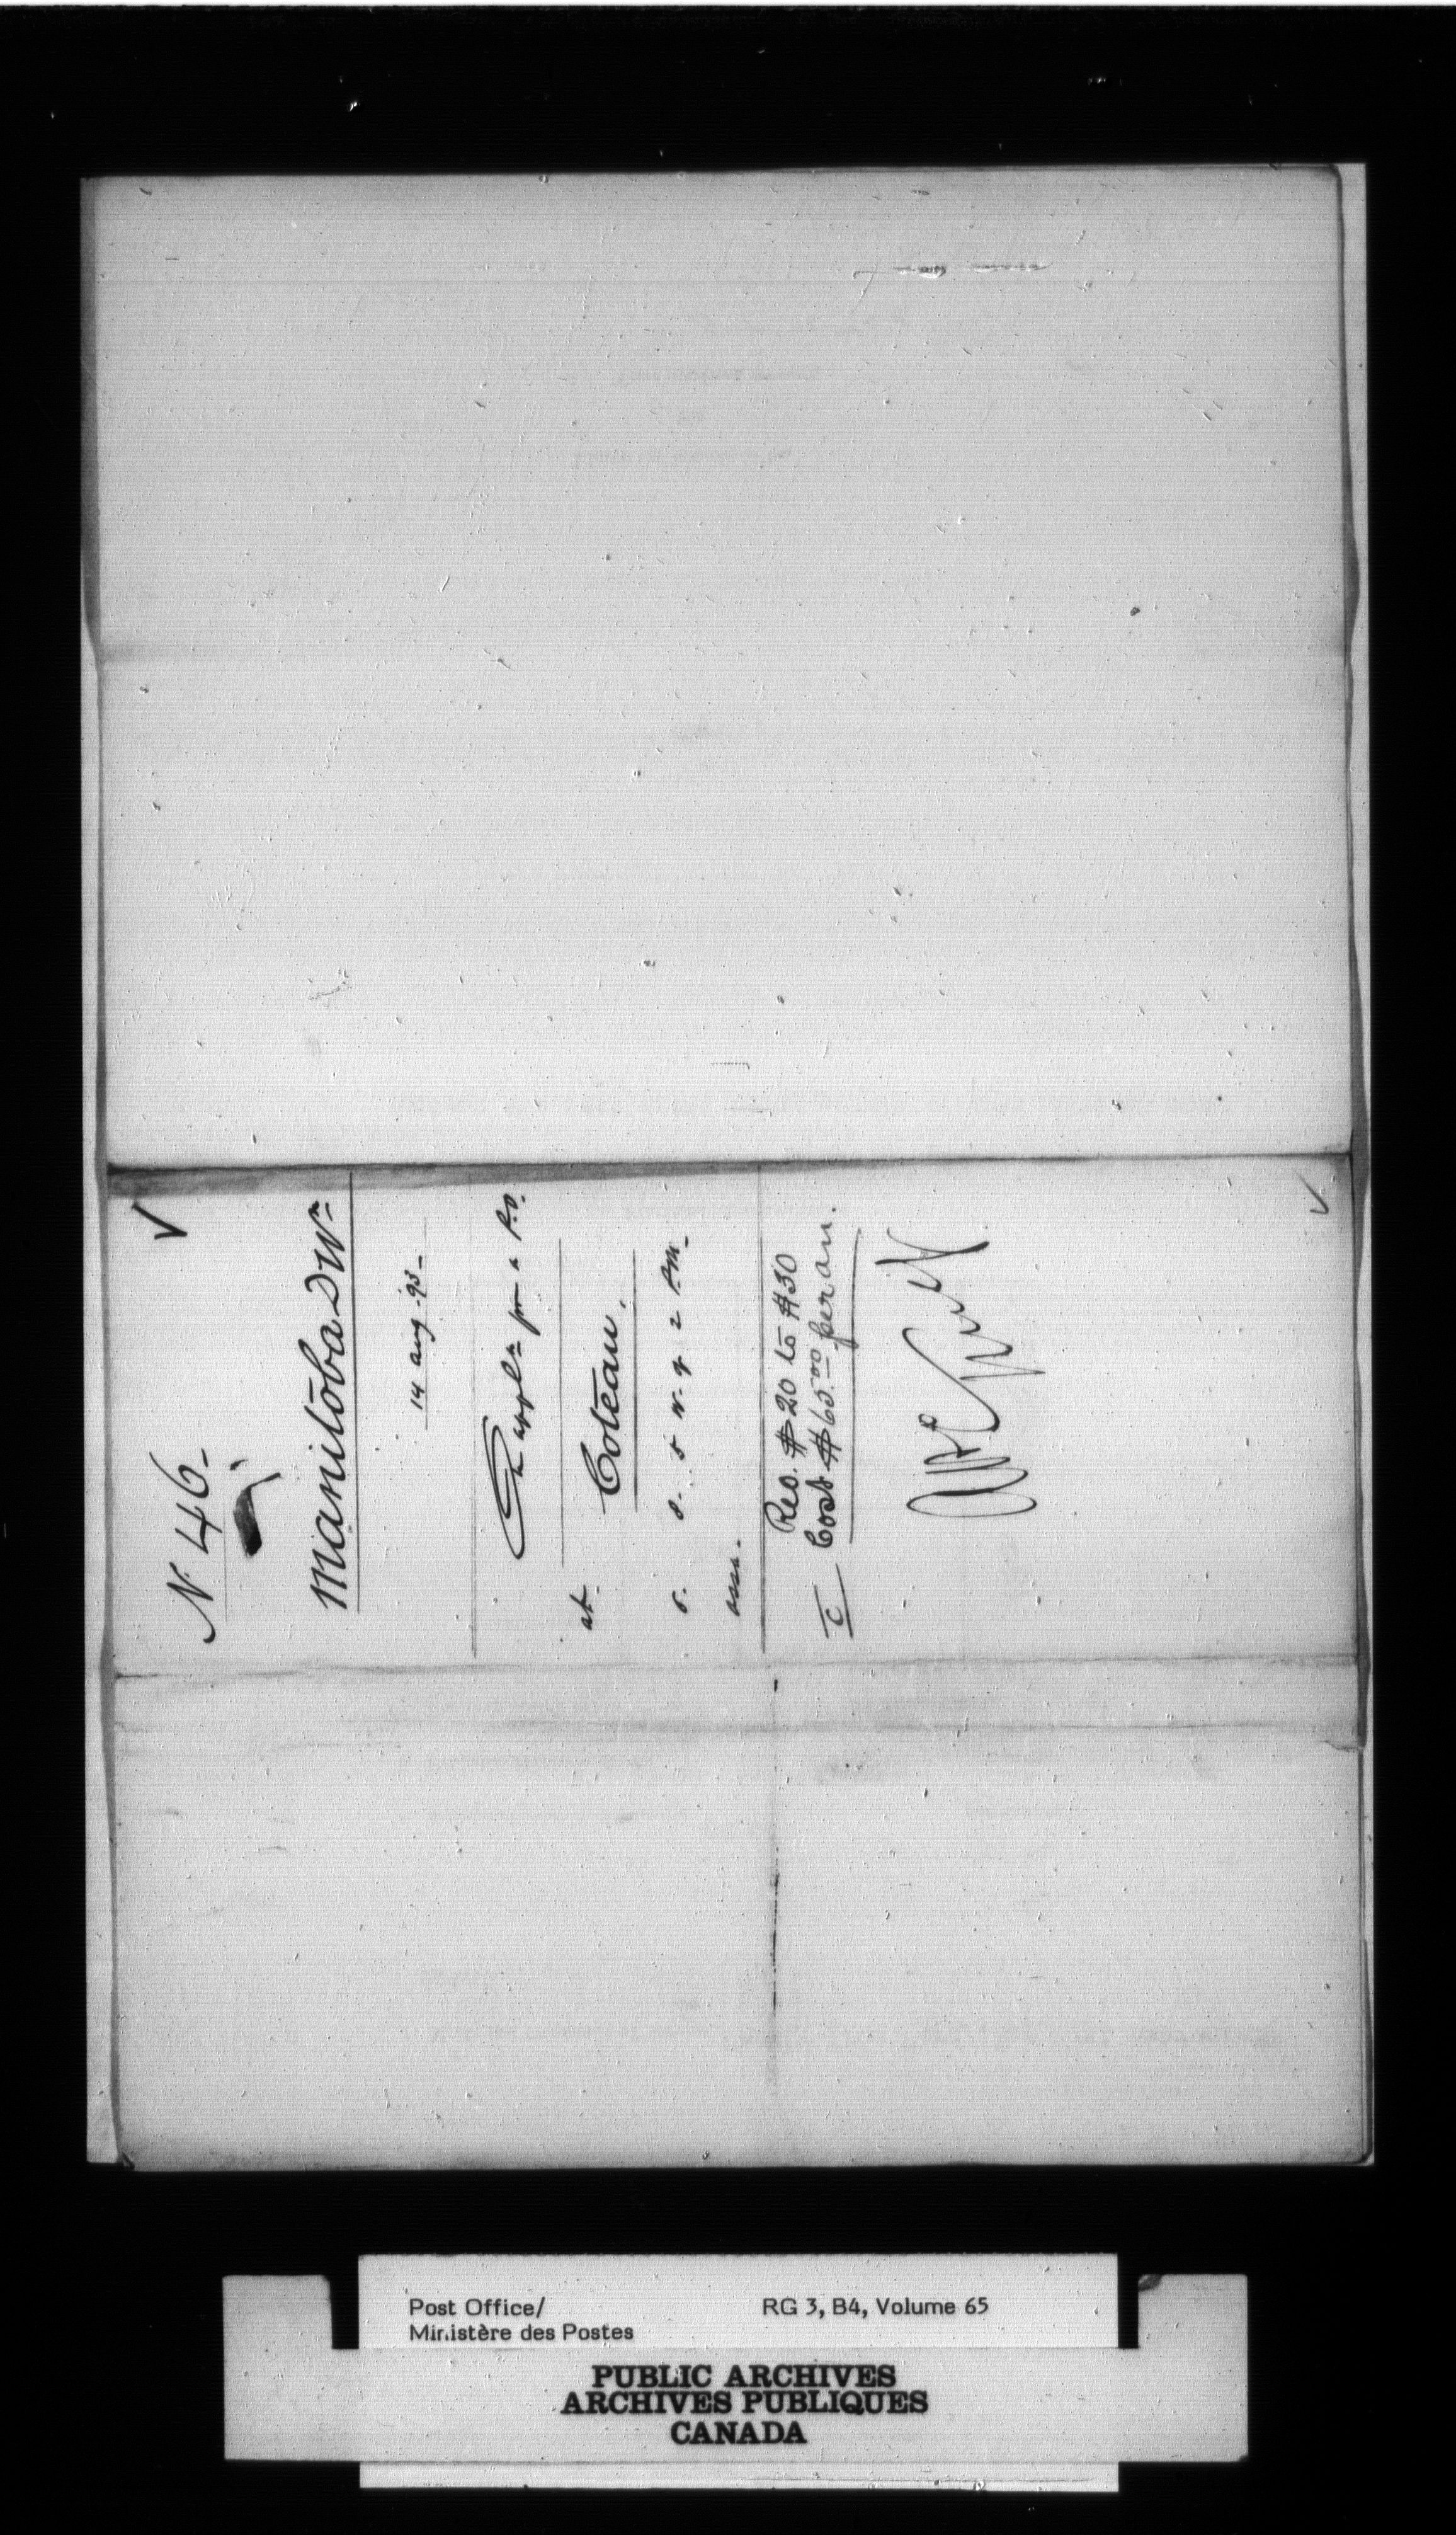 N. 46-
Manitoba Dnn
14 Aug. 93-
On appln for a P.O.
at
Coteau,
S. 8. 5 W. of 2 P.M.
assa.
Rev. $20 to $30
C Cost $65.00 per an.
Post Office/ RG 3, B4, Volume 65
Ministère des Postes
PUBLIC ARCHIVES
ARCHIVES PUBLIQUES
CANADA